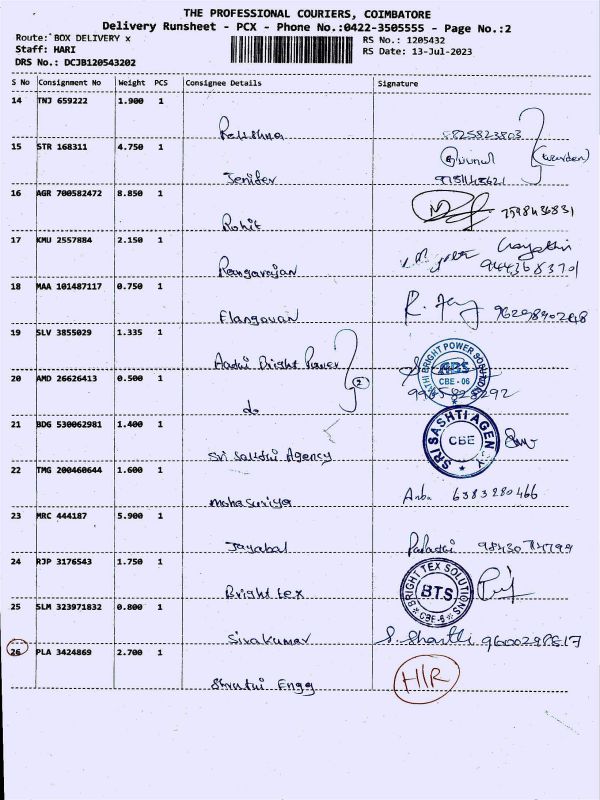 THE PROFESSIONAL COURIERS, COIMBATORE
Delivery Runsheet - PCX - Phone No.:0422-3505555 - Page No.:2
Route: BOX DELIVERY x
RS No.: 1205432
Staff: HARI
RS Date: 13-Jul-2023
DRS No.: DCJB120543202
S No Consignment No Weight PCS Consignee Details Signature
14 TNJ 659222 1.900 1
15 STR 168311 4.750 1 Jenifer
16 AGR 700582472 8.850 1 Rohit 7598436831
17 KMU 2557884 2.150 1 Rangarajan
18 MAA 101487117 0.750 1 Elangovan
19 SLV 3855029 1.335 1 Aadhi Bright Power
ABS
CBE - 06
20 AMD 26626413 0.500 1 do 2
21 BDG 530062981 1.400 1 Sri Sasthi Agency
SRI SASHTI AGENCY
CBE
22 TMG 200460644 1.600 1 Mohasuriya Anbu 6383280466
23 MRC 444187 5.900 1 Jayabal
24 RJP 3176543 1.750 1 Bright tex
BRIGHT TEX SOLUTIONS
BTS
CBE-6
25 SLM 323971832 0.800 1 Sivakumar S. Shanthi
26 PLA 3424869 2.700 1 Shruthi Engg H/R